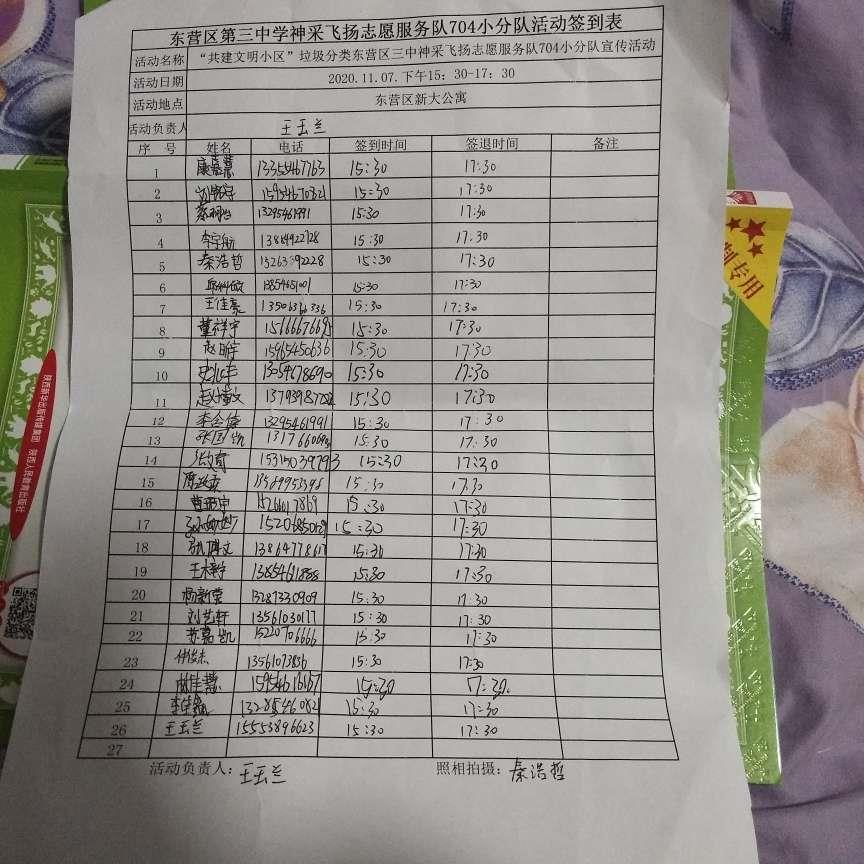 东营区第三中学神采飞扬志愿服务队704小分队活动签到表
活动名称 “共建文明小区”垃圾分类东营区三中神采飞扬志愿服务队704小分队宣传活动
活动日期 2020.11.07.下午15：30-17：30
活动地点 东营区新大公寓
活动负责人 王玉兰
序 号 姓名 电话 签到时间 签退时间 备注
1 康嘉慧 13355467763 15:30 17:30
2 15954670821 15:30 17:30
3 13295461991 15:30 17:30
4 李宇航 13884922728 15:30 17:30
5 秦浩哲 13263892228 15:30 17:30
6 15:30 17:30
7 王佳豪 13506366336 15:30 17:30
8 董祥宇 15666676695 15:30 17:30
9 赵昕宇 15965450636 15:30 17:30
10 13054678690 15:30 17:30
11 15:30 17:30
12 李金倬 13295461991 15:30 17:30
13 张国凯 15:30 17:30
14 15315039793 15:30 17:30
15 13589953598 15:30 17:30
16 15266017869 15:30 17:30
17 15:30 17:30
18 15:30 17:30
19 13854611888 15:30 17:30
20 杨新荣 13287330909 15:30 17:30
21 刘艺轩 13561030177 15:30 17:30
22 苏嘉凯 15220706666 15:30 17:30
23 仲俊杰 13561073856 15:30 17:30
24 林佳慧 15954616167 15:30 17:30
25 15:30 17:30
26 王玉兰 15553896623 15:30 17:30
27
活动负责人：王玉兰 照相拍摄：秦浩哲
制专用
陕西新华出版传媒集团
陕西人民教育出版社